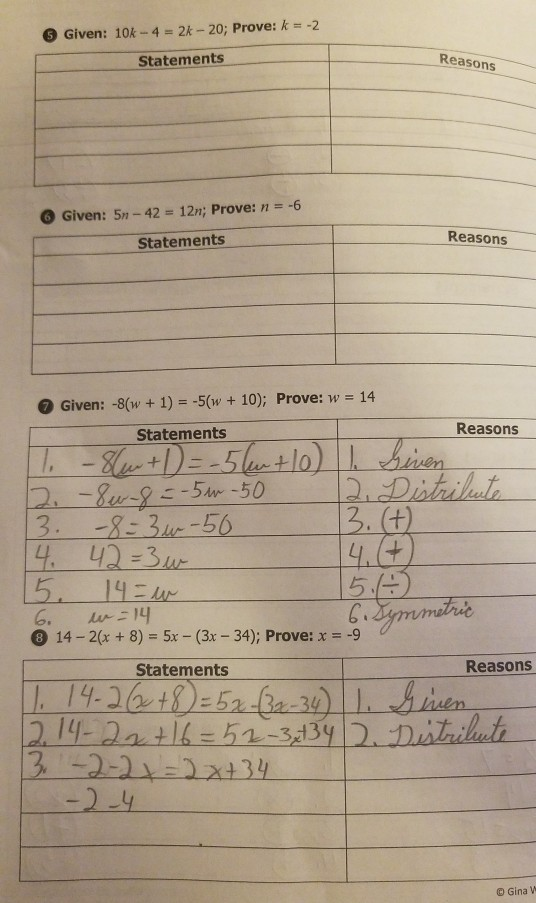 5 Given: 10k – 4 = 2k – 20; Prove: k = -2
Statements Reasons
6 Given: 5n – 42 = 12n; Prove: n = -6
Statements Reasons
7 Given: -8(w + 1) = -5(w + 10); Prove: w = 14
Statements Reasons
1. -8(w+1) = -5(w+10) 1. Given
2. -8w-8 = -5w-50 2. Distribute
3. -8 = 3w-50 3. (+)
4. 42 = 3w 4. (+)
5. 14 = w 5. (÷)
6. w = 14 6. Symmetric
8 14 – 2(x + 8) = 5x – (3x – 34); Prove: x = -9
Statements Reasons
1. 14-2(x+8) = 5x-(3x-34) 1. Given
2. 14-2x+16 = 5x-3x+34 2. Distribute
3. -2-2x = 2x+34
-2-4
© Gina